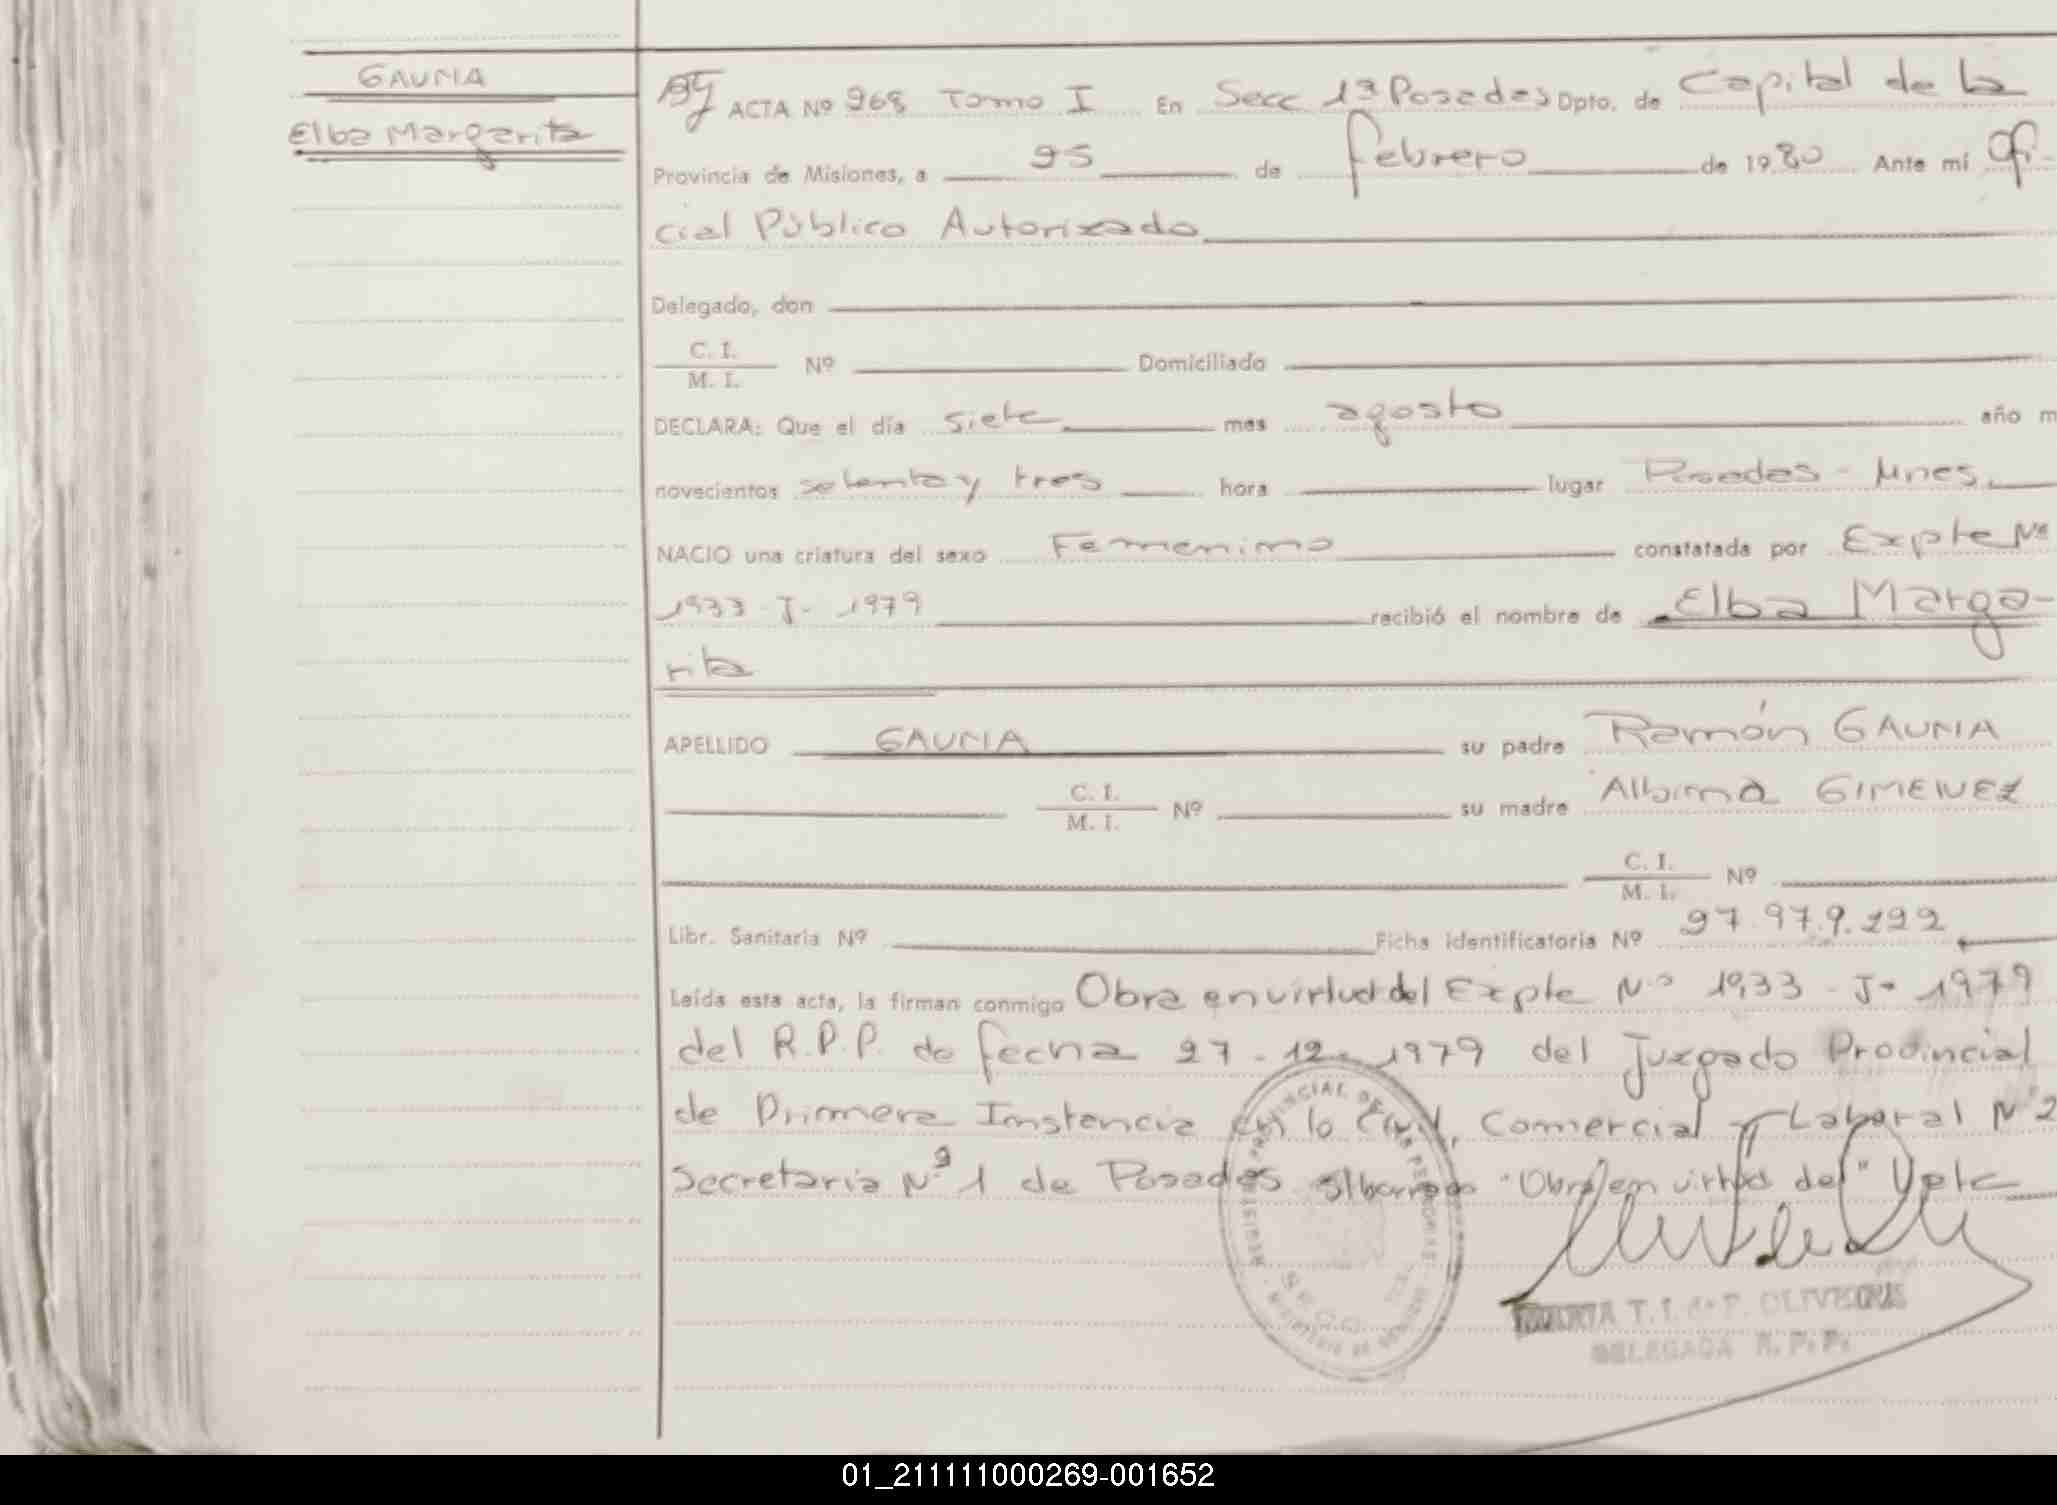 GAUNA
Elba Margarita
ACTA Nº 268 Tomo I En Secc 1ª Posadas Dpto. de Capital de la
Provincia de Misiones, a 25 de febrero de 1980 Ante mí Ofi-
cial Público Autorizado
Delegado, don
C. I.
M. I. Nº Domiciliado
DECLARA: Que el día siete mes agosto año m
novecientos setenta y tres hora lugar Posadas - Mnes.
NACIO una criatura del sexo Femenino constatada por Expte Nº
1933 - J - 1979 recibió el nombre de Elba Marga-
rita
APELLIDO GAUNA su padre Ramón GAUNA
C. I.
M. I. Nº su madre Albina GIMENEZ
C. I.
M. I. Nº
Libr. Sanitaria Nº Ficha identificatoria Nº 27.979.222
Leída esta acta, la firman conmigo Obra en virtud del Expte Nº 1933 - J - 1979
del R.P.P. de fecha 27-12-1979 del Juzgado Provincial
de Primera Instancia en lo Civil, Comercial y Laboral Nº 2
Secretaria Nº 1 de Posadas s/borrado "Obra en virtud del" Vale
MARTA T. I. de P. OLIVEIRA
DELEGADA R. P. P.
01_211111000269-001652